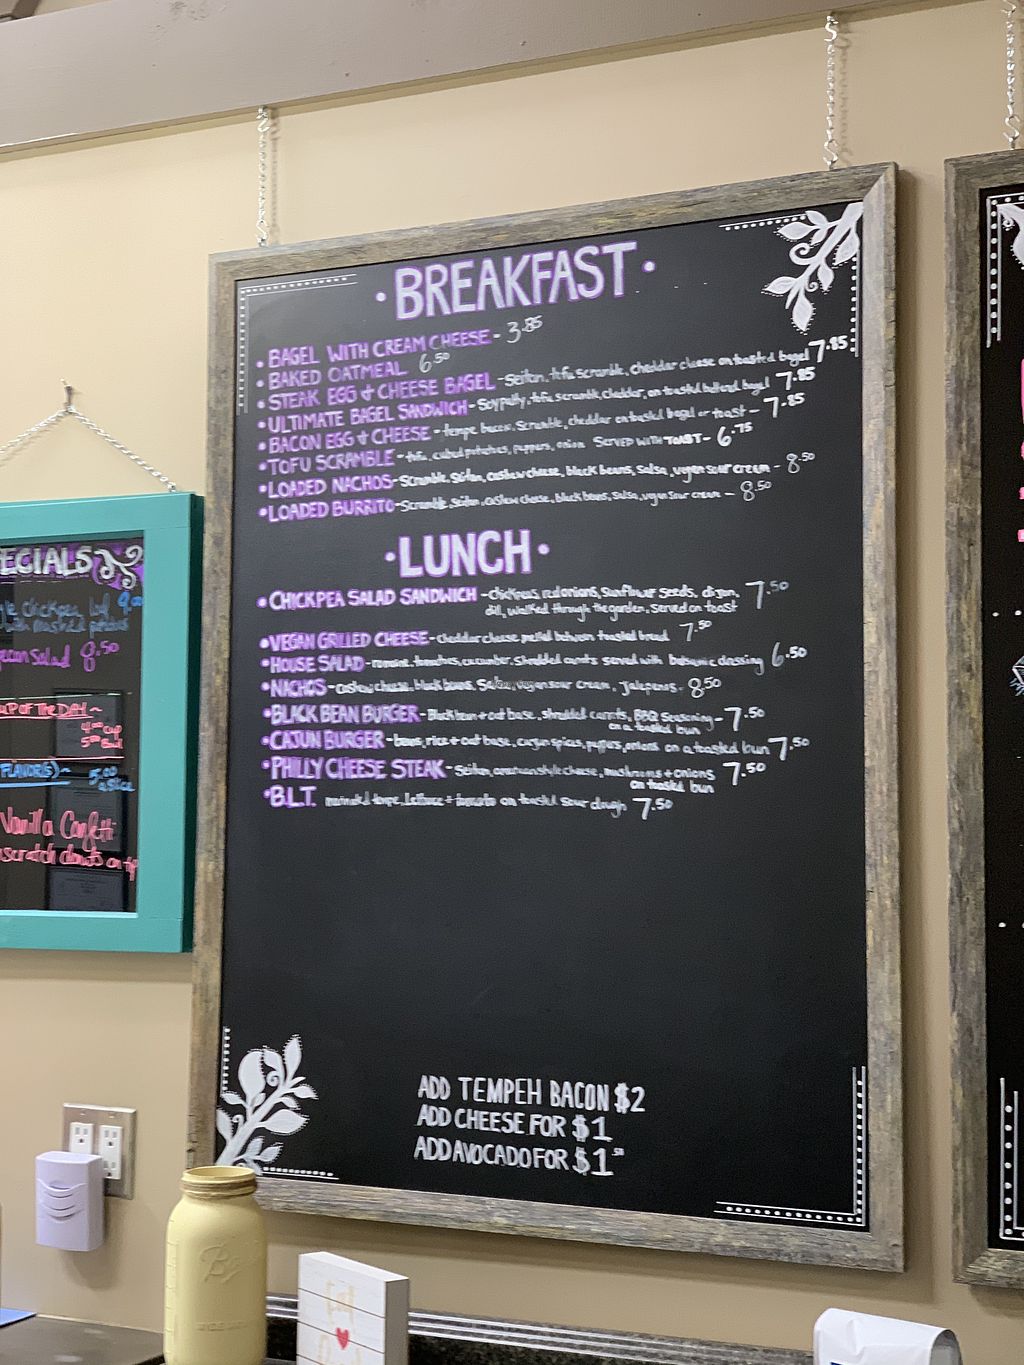 ·BREAKFAST·
• BAGEL WITH CREAM CHEESE - 3.85
• BAKED OATMEAL 6.50
• STEAK EGG & CHEESE BAGEL - Seitan, tofu scramble, cheddar cheese on toasted bagel 7.85
• ULTIMATE BAGEL SANDWICH - Soy patty, tofu scramble, cheddar, on toasted buttered bagel 7.85
• BACON EGG & CHEESE - tempe bacon, Scramble, cheddar on toasted bagel or toast - 7.85
• TOFU SCRAMBLE - tofu, cubed potatoes, peppers, onion SERVED WITH TOAST - 6.75
• LOADED NACHOS - Scramble, Seitan, cashew cheese, black beans, salsa, vegan sour cream - 8.50
• LOADED BURRITO - Scramble, seitan, cashew cheese, black beans, salsa, vegan sour cream - 8.50
·LUNCH·
• CHICKPEA SALAD SANDWICH - chickpeas, red onions, Sunflower seeds, dijon, 7.50
dill, walked through the garden, served on toast
• VEGAN GRILLED CHEESE - cheddar cheese melted between toasted bread 7.50
• HOUSE SALAD - romaine, tomatoes, cucumber, shredded carrots served with balsamic dressing 6.50
• NACHOS - cashew cheese, black beans, Salsa, vegan sour cream, jalepenos - 8.50
• BLACK BEAN BURGER - Black bean + oat base, shredded carrots, BBQ seasoning - 7.50
on a toasted bun
• CAJUN BURGER - beans, rice + oat base, cajun spices, peppers, onions on a toasted bun 7.50
• PHILLY CHEESE STEAK - Seitan, american style cheese, mushrooms + onions 7.50
on toasted bun
• B.L.T. marinated tempe, lettuce + tomato on toasted sour dough 7.50
ADD TEMPEH BACON $2
ADD CHEESE FOR $1
ADD AVOCADO FOR $1.50
ECIALS
Chickpea 9.00
with mashed potatoes
Salad 8.50
OF THE DAY ~
4.00 cup
5.00 Bowl
FLAVOR(S) ~ 5.00
a slice
Vanilla Confetti
scratch donuts